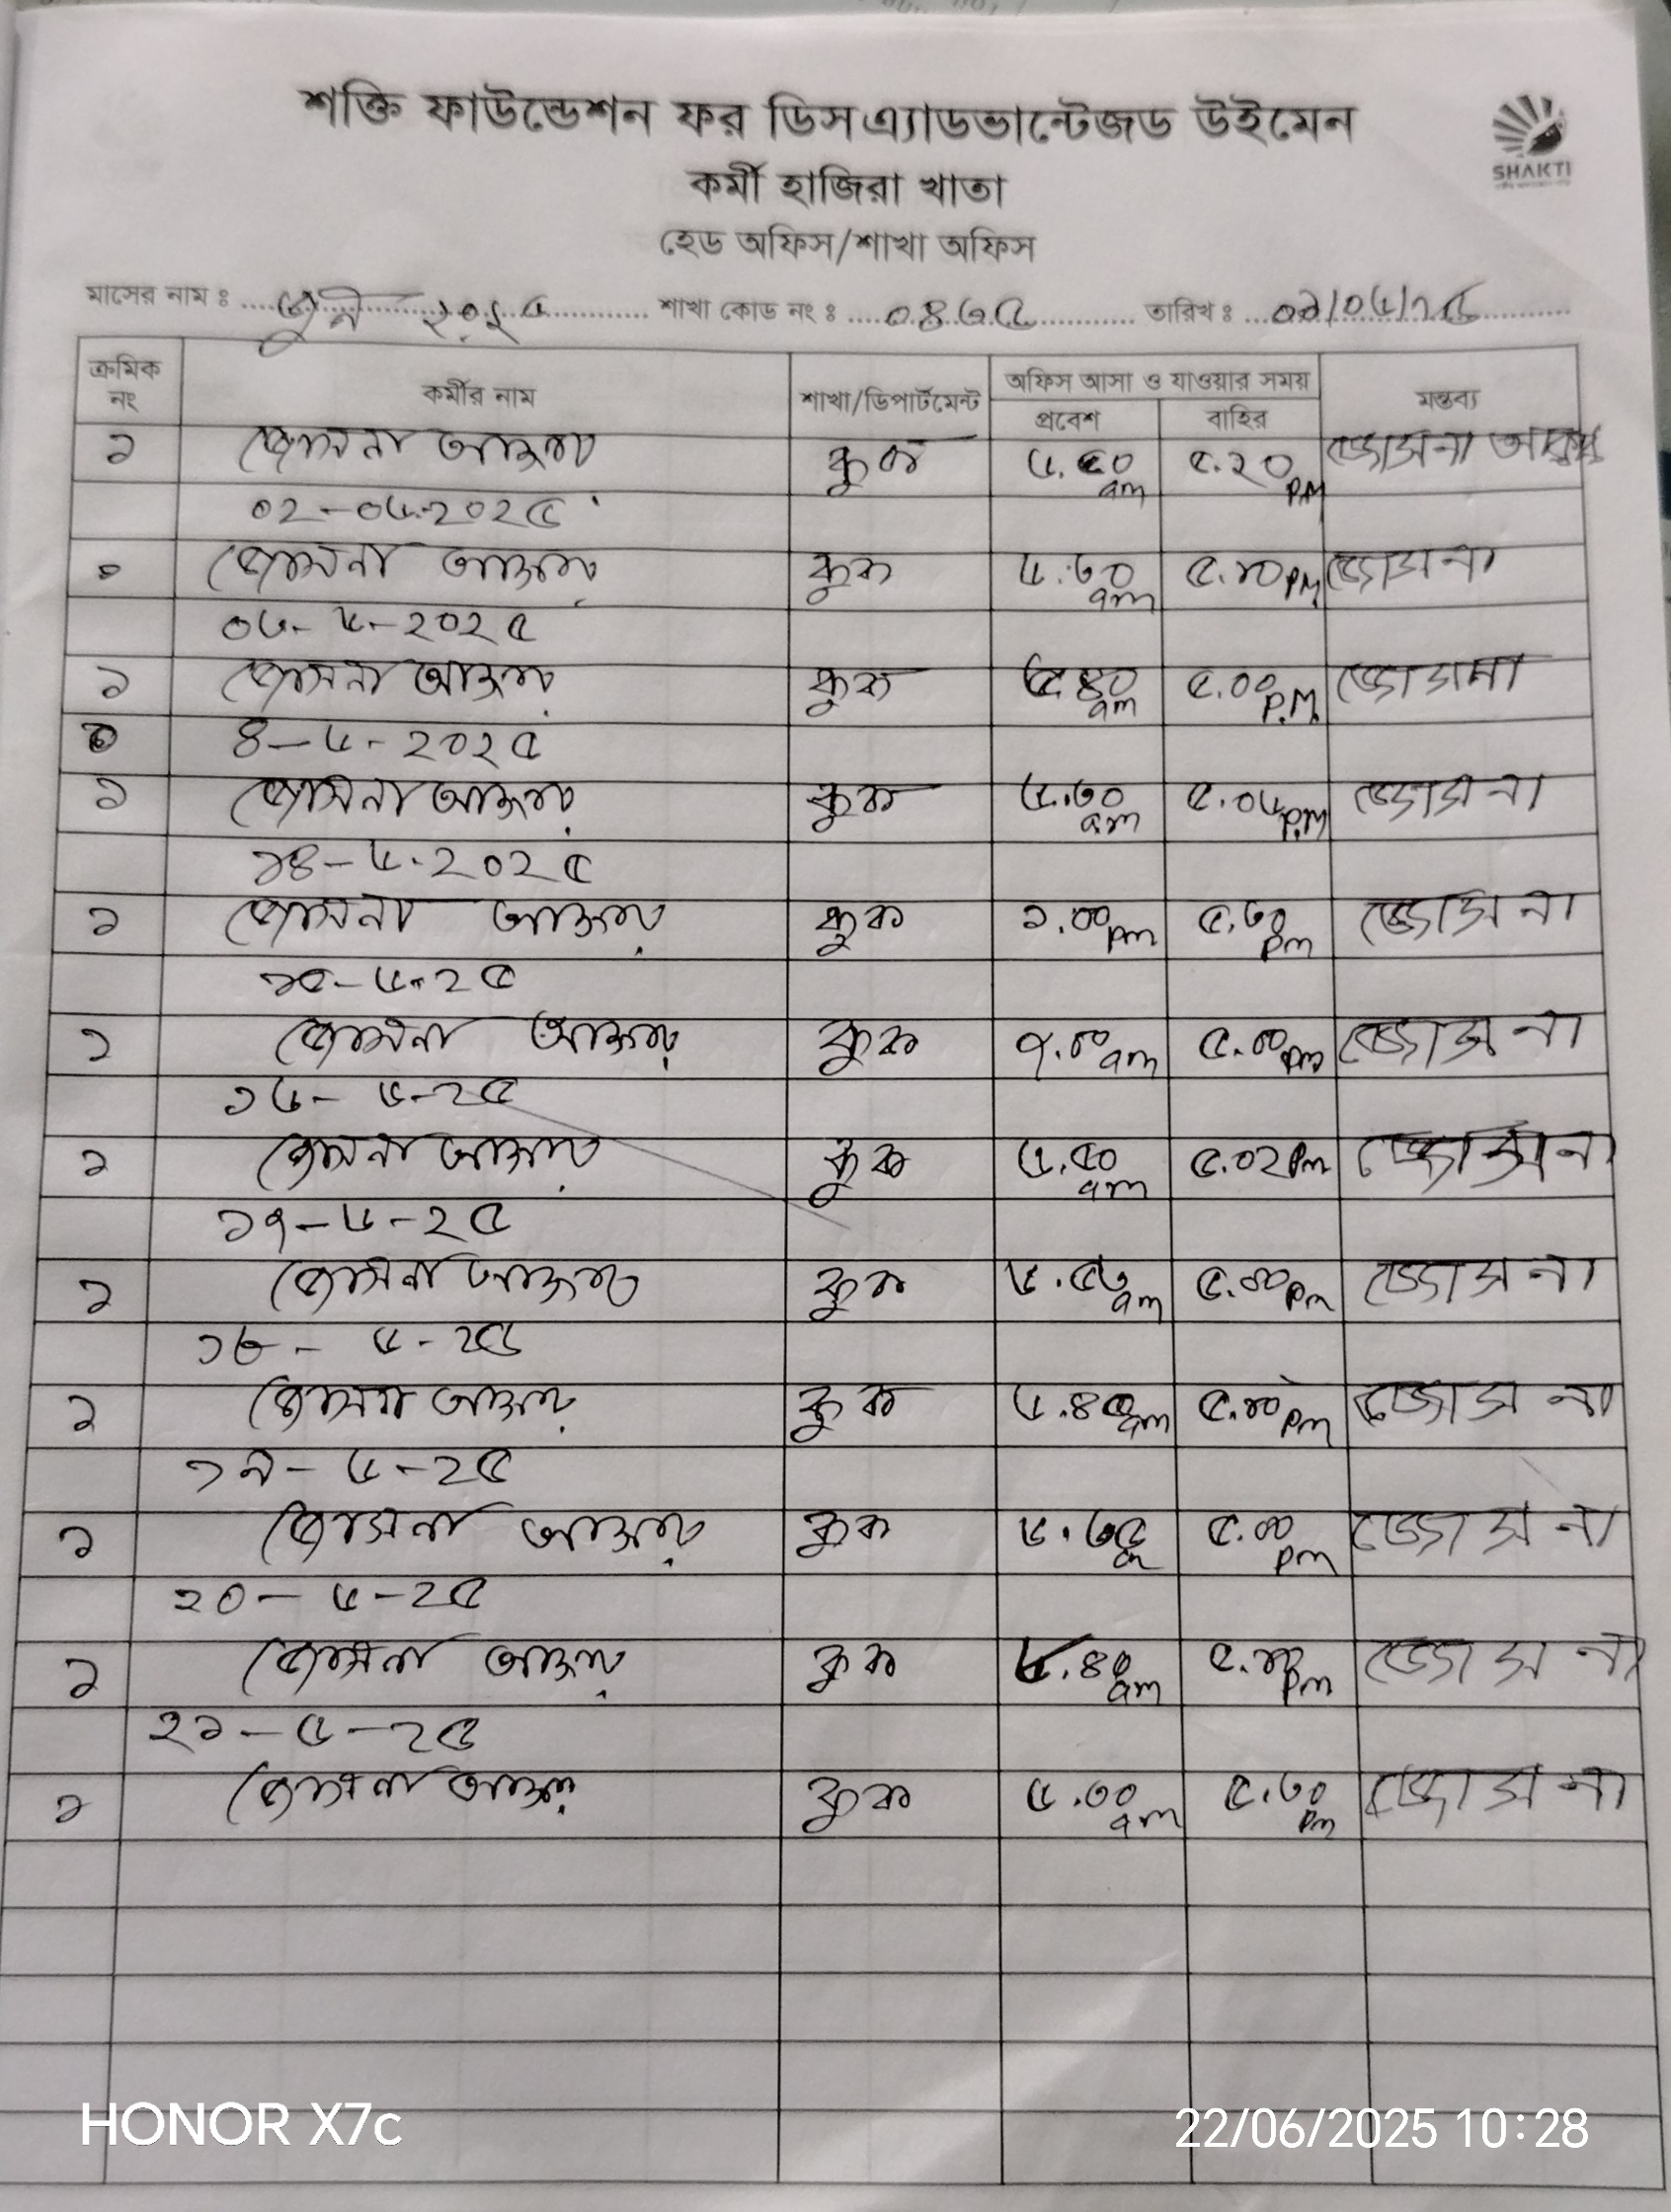 শক্তি ফাউন্ডেশন ফর ডিসএ্যাডভান্টেজড উইমেন
SHAKTI
কর্মী হাজিরা খাতা
হেড অফিস/শাখা অফিস
মাসের নাম ঃ জুন ২০২৫ শাখা কোড নং ঃ ০৪৩৫ তারিখ ঃ ০১/০৬/২৫
ক্রমিক নং কর্মীর নাম শাখা/ডিপার্টমেন্ট অফিস আসা ও যাওয়ার সময় মন্তব্য
প্রবেশ বাহির
১ জোসনা আক্তার কুক ৬.৫০ am ৫.২০ P.M জোসনা আক্তার
০২-০৬-২০২৫
জোসনা আক্তার কুক ৬.৩০ am ৫.১০ P.M জোসনা
০৩-৬-২০২৫
১ জোসনা আক্তার কুক ৬.৪০ am ৫.০০ P.M. জোসনা
৪-৬-২০২৫
১ জোসনা আক্তার কুক ৬.৩০ am ৫.০৬ P.M জোসনা
১৪-৬-২০২৫
১ জোসনা আক্তার কুক ১.০০ pm ৫.৩০ pm জোসনা
১৫-৬-২৫
১ জোসনা আক্তার কুক ৭.০০ am ৫.০০ pm জোসনা
১৬-৬-২৫
১ জোসনা আক্তার কুক ৬.৫০ am ৫.০২ Pm জোসনা
১৭-৬-২৫
১ জোসনা আক্তার কুক ৬.৫৩ am ৫.০০ Pm জোসনা
১৮-৬-২৫
১ জোসনা আক্তার কুক ৬.৪৫ am ৫.১০ pm জোসনা
১৯-৬-২৫
১ জোসনা আক্তার কুক ৬.৩৫ ৫.০০ pm জোসনা
২০-৬-২৫
১ জোসনা আক্তার কুক ৬.৪০ am ৫.১০ pm জোসনা
২১-৬-২৫
১ জোসনা আক্তার কুক ৬.৩০ am ৫.৩০ Pm জোসনা
HONOR X7c 22/06/2025 10:28